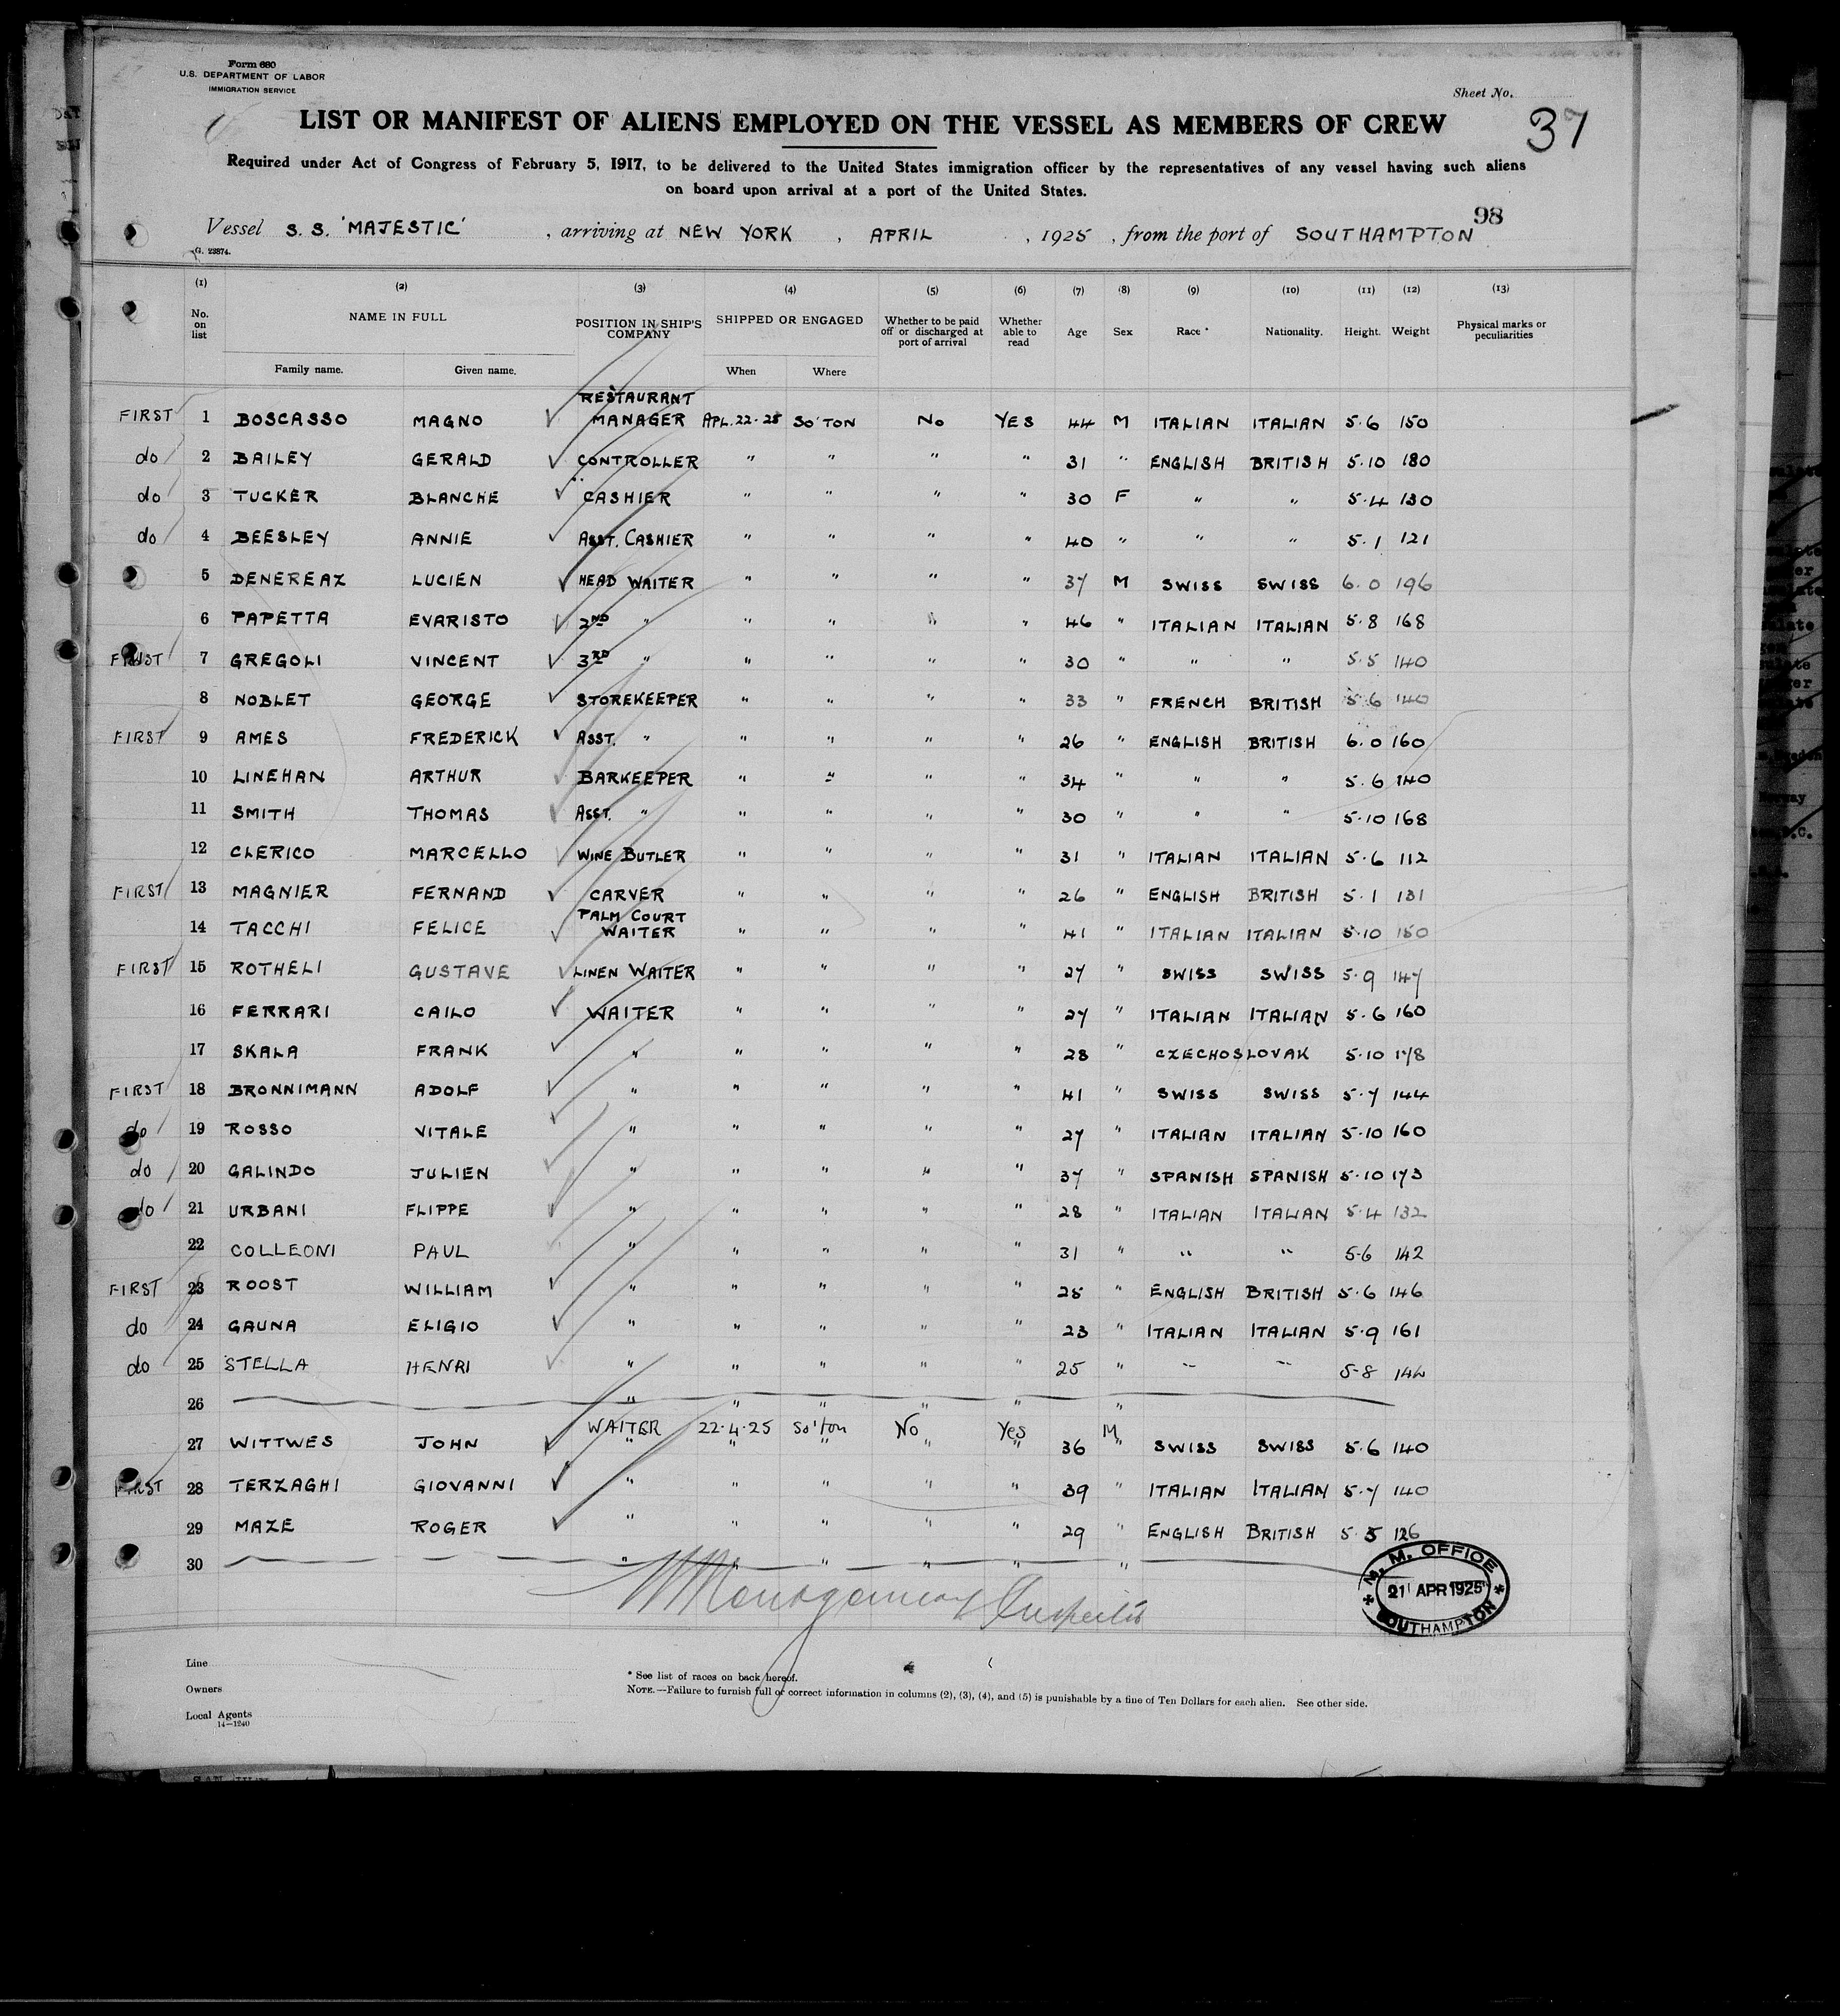 Form 680
U.S. DEPARTMENT OF LABOR
IMMIGRATION SERVICE
Sheet No.
37
LIST OR MANIFEST OF ALIENS EMPLOYED ON THE VESSEL AS MEMBERS OF CREW
Required under Act of Congress of February 5, 1917, to be delivered to the United States immigration officer by the representatives of any vessel having such aliens
on board upon arrival at a port of the United States.
98
Vessel S.S. 'MAJESTIC', arriving at NEW YORK, APRIL, 1925, from the port of SOUTHAMPTON
G. 23874.
(1) (2) (3) (4) (5) (6) (7) (8) (9) (10) (11) (12) (13)
No. on list NAME IN FULL POSITION IN SHIP'S COMPANY SHIPPED OR ENGAGED Whether to be paid off or discharged at port of arrival Whether able to read Age Sex Race * Nationality. Height. Weight Physical marks or peculiarities
Family name. Given name. When Where
FIRST 1 BOSCASSO MAGNO RESTAURANT MANAGER APL.22-25 SO'TON No YES 44 M ITALIAN ITALIAN 5.6 150
do 2 BAILEY GERALD CONTROLLER " " " " 31 " ENGLISH BRITISH 5.10 180
do 3 TUCKER BLANCHE CASHIER " " " " 30 F " " 5.4 130
do 4 BEESLEY ANNIE ASST. CASHIER " " " " 40 " " " 5.1 121
5 DENEREAZ LUCIEN HEAD WAITER " " " " 37 M SWISS SWISS 6.0 196
6 PAPETTA EVARISTO 2ND " " " " " 46 " ITALIAN ITALIAN 5.8 168
FIRST 7 GREGOLI VINCENT 3RD " " " " " 30 " " " 5.5 140
8 NOBLET GEORGE STOREKEEPER " " " " 33 " FRENCH BRITISH 5.6 140
FIRST 9 AMES FREDERICK ASST. " " " " " 26 " ENGLISH BRITISH 6.0 160
10 LINEHAN ARTHUR BARKEEPER " " " " 34 " " " 5.6 140
11 SMITH THOMAS ASST. " " " " " 30 " " " 5.10 168
12 CLERICO MARCELLO WINE BUTLER " " " " 31 " ITALIAN ITALIAN 5.6 112
FIRST 13 MAGNIER FERNAND CARVER " " " " 26 " ENGLISH BRITISH 5.1 131
14 TACCHI FELICE PALM COURT WAITER " " " " 41 " ITALIAN ITALIAN 5.10 150
FIRST 15 ROTHELI GUSTAVE LINEN WAITER " " " " 27 " SWISS SWISS 5.9 147
16 FERRARI CAILO WAITER " " " " 27 " ITALIAN ITALIAN 5.6 160
17 SKALA FRANK " " " " " 28 " CZECHOSLOVAK 5.10 178
FIRST 18 BRONNIMANN ADOLF " " " " " 41 " SWISS SWISS 5.7 144
do 19 ROSSO VITALE " " " " " 27 " ITALIAN ITALIAN 5.10 160
do 20 GALINDO JULIEN " " " " " 37 " SPANISH SPANISH 5.10 173
do 21 URBANI FLIPPE " " " " " 28 " ITALIAN ITALIAN 5.4 132
22 COLLEONI PAUL " " " " " 31 " " " 5-6 142
FIRST 23 ROOST WILLIAM " " " " " 25 " ENGLISH BRITISH 5.6 146
do 24 GAUNA ELIGIO " " " " " 23 " ITALIAN ITALIAN 5.9 161
do 25 STELLA HENRI " " " " " 25 " " " 5-8 144
26 " " " " " "
WAITER 22.4.25 So'ton No Yes M
27 WITTWES JOHN " " " " " 36 " SWISS SWISS 5.6 140
FIRST 28 TERZAGHI GIOVANNI " " " " " 39 " ITALIAN ITALIAN 5.7 140
29 MAZE ROGER " " " " " 29 " ENGLISH BRITISH 5.5 126
30 " " " " " "
Montgomery Inspector
M. M. OFFICE
21 APR 1925
SOUTHAMPTON
Line
Owners
Local Agents
14—1240
* See list of races on back hereof.
NOTE.—Failure to furnish full or correct information in columns (2), (3), (4), and (5) is punishable by a fine of Ten Dollars for each alien. See other side.